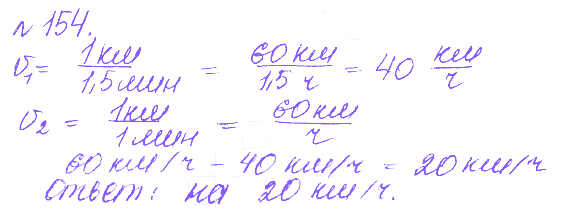 № 154.
v₁ = 1 км / 1,5 мин = 60 км / 1,5 ч = 40 км/ч
v₂ = 1 км / 1 мин = 60 км / ч
60 км/ч - 40 км/ч = 20 км/ч
Ответ: на 20 км/ч.